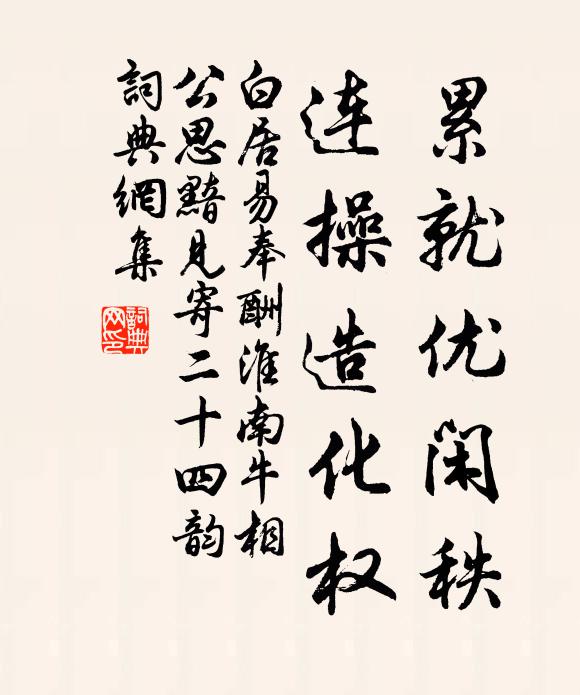 累就优闲秩
连操造化权
白居易奉酬淮南牛相
公思黯见寄二十四韵
詞典網集
詞典网印